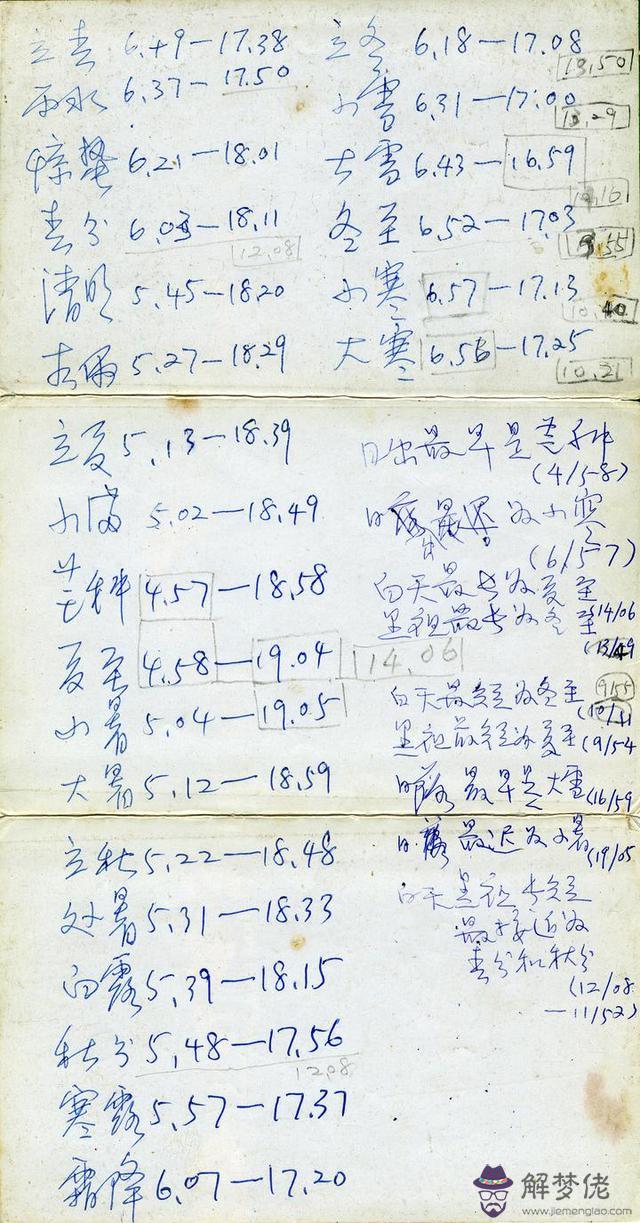 立春 6.49—17.38
雨水 6.37—17.50
惊蛰 6.21—18.01
春分 6.03—18.11
12.08
清明 5.45—18.20
谷雨 5.27—18.29
立冬 6.18—17.08
13.50
小雪 6.31—17.00
13.29
大雪 6.43—16.59
冬至 6.52—17.03
小寒 6.57—17.13
10.40
大寒 6.56—17.25
10.21
立夏 5.13—18.39
小满 5.02—18.49
芒种 4.57—18.58
夏至 4.58—19.04 14.06
小暑 5.04—19.05
大暑 5.12—18.59
日出最早是芒种
(4/58)
日出最迟为小寒
(6/57)
白天最长为夏至
(14/06
黑夜最长为冬至
白天最短为冬至
黑夜最短为夏至(9/54
日落最早是大雪(16/59
日落最迟为小暑
(19/05
立秋 5.22—18.48
处暑 5.31—18.33
白露 5.39—18.15
秋分 5.48—17.56
12.08
寒露 5.57—17.37
霜降 6.07—17.20
白天黑夜长短
最接近为
春分和秋分
(12/08
—11/52)
解梦佬
www.jiemenglao.com